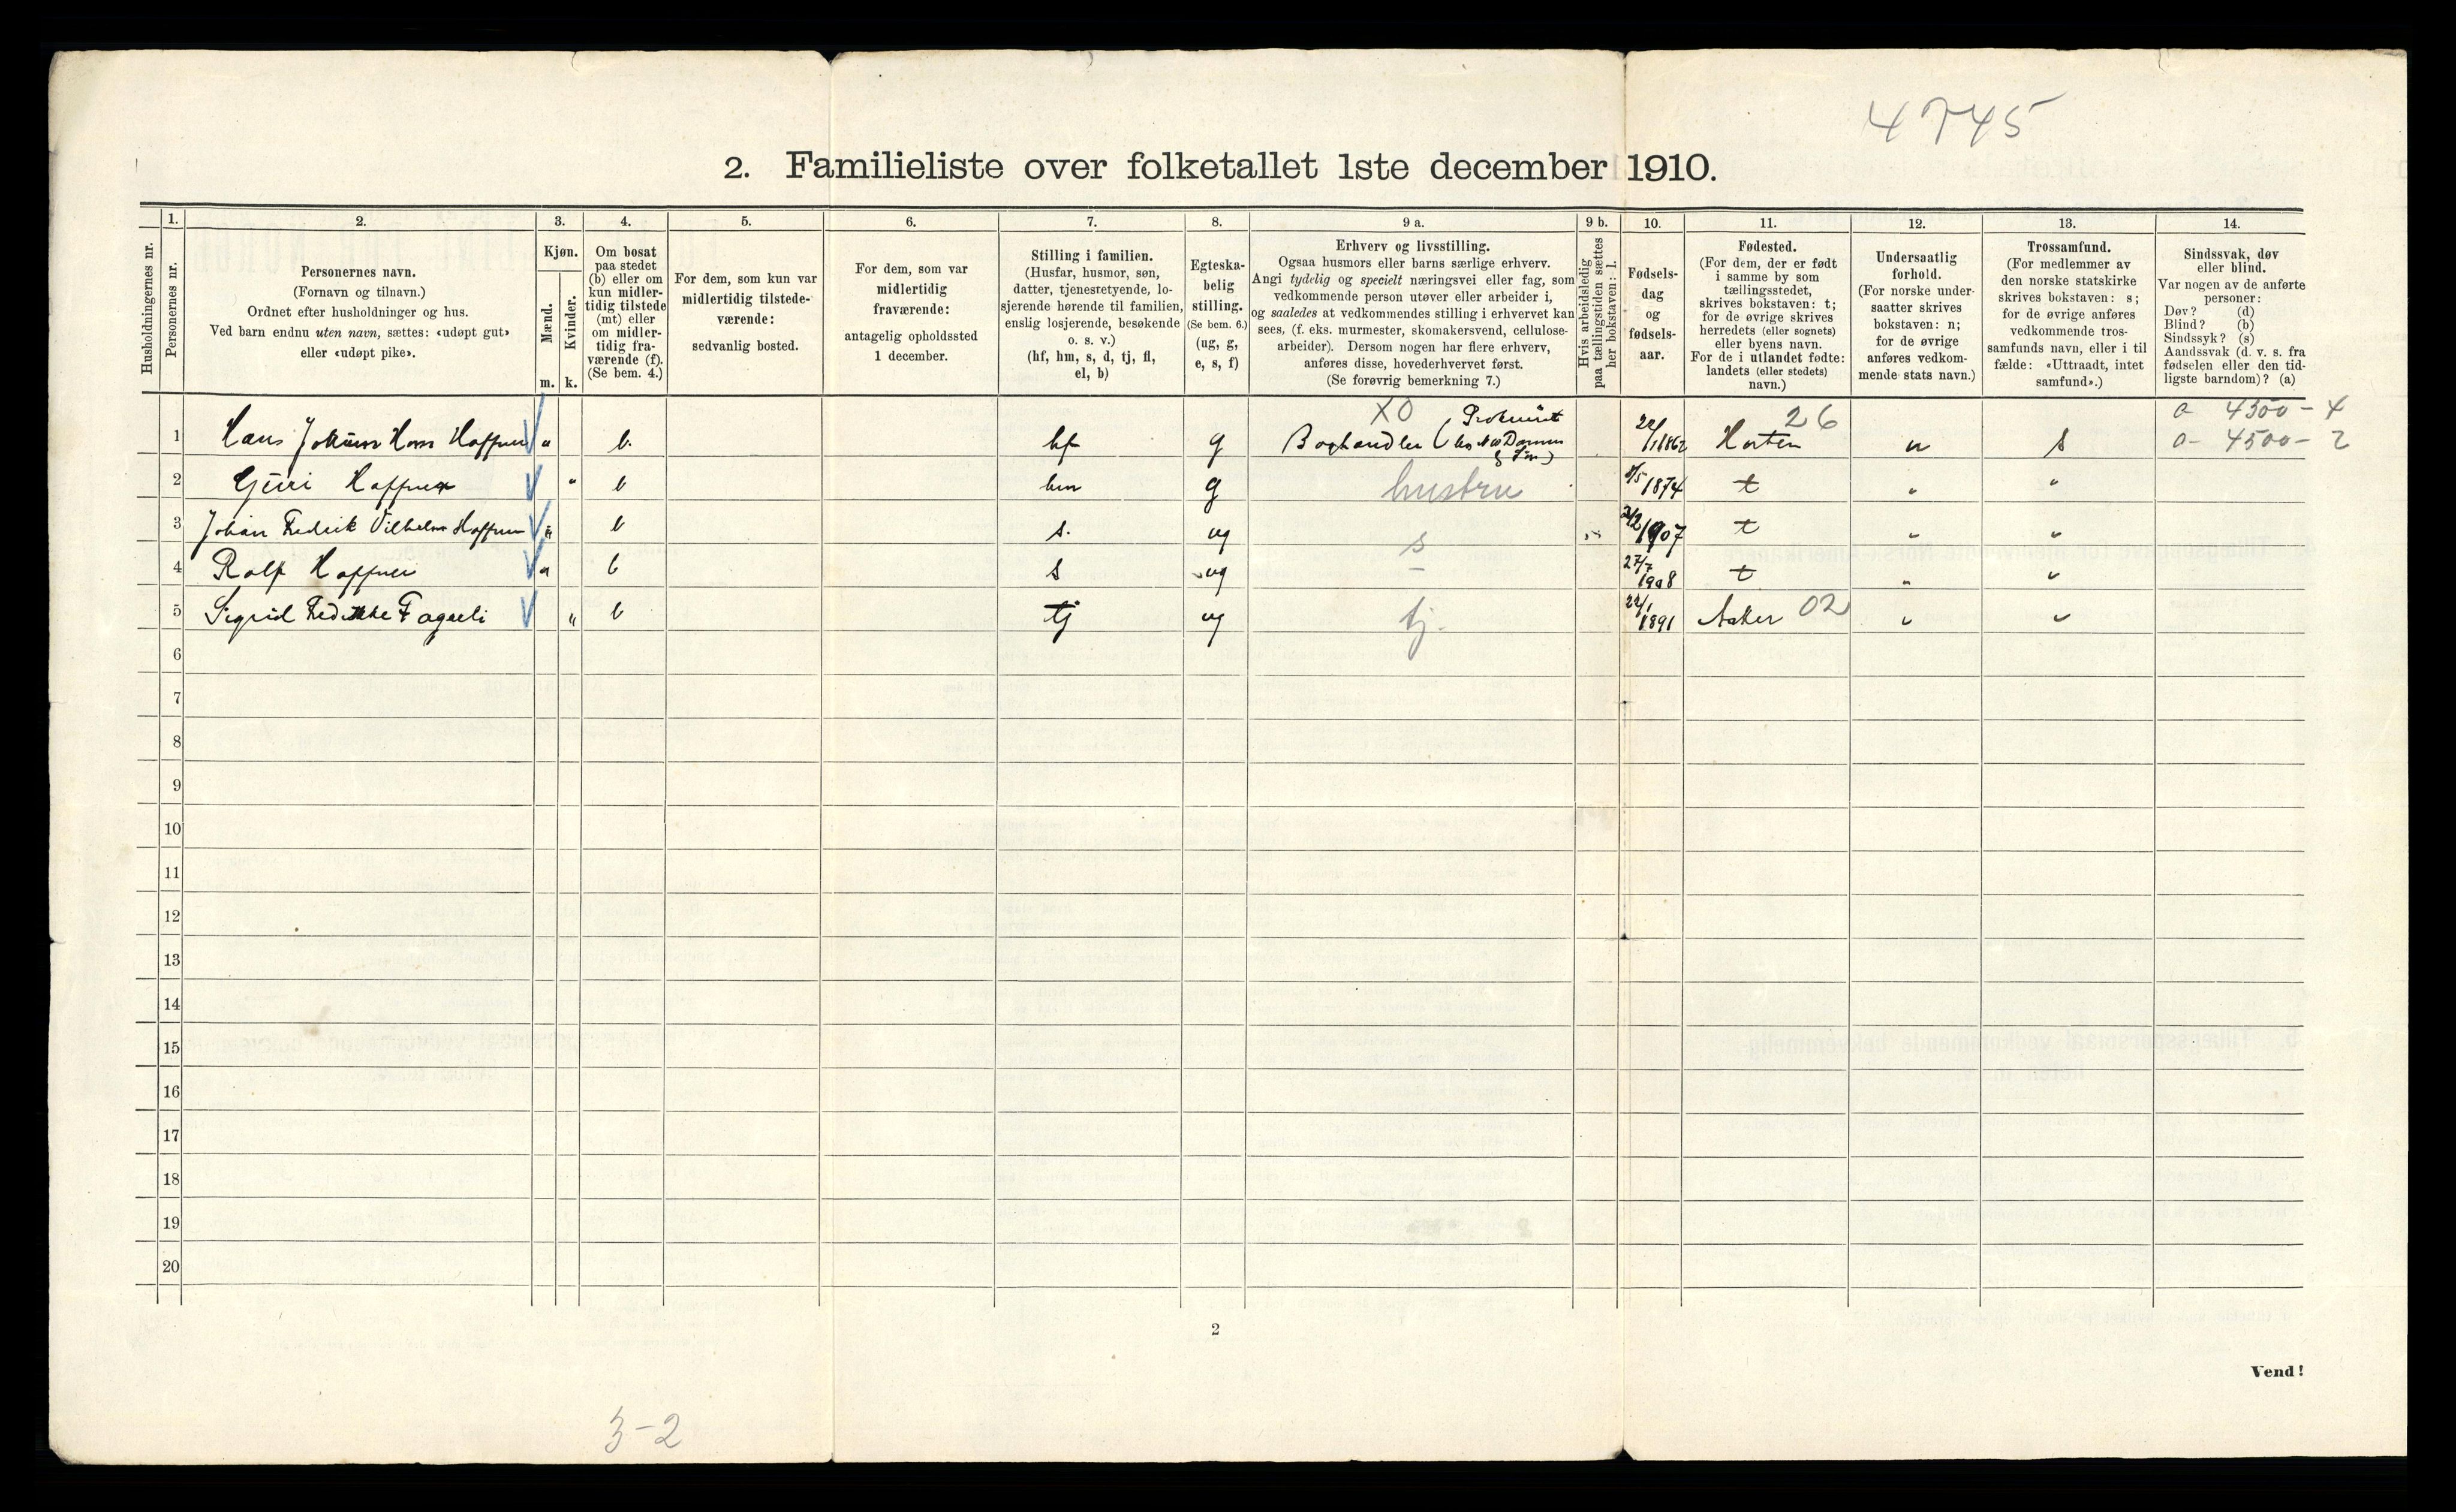 4745
2. Familieliste over folketallet 1ste december 1910.
Husholdningernes nr.
1.
Personernes nr.
2.
Personernes navn.
(Fornavn og tilnavn.)
Ordnet efter husholdninger og hus.
Ved barn endnu uten navn, sættes: «udøpt gut»
eller «udøpt pike».
3.
Kjøn.
Mænd.
Kvinder.
m. k.
4.
Om bosat
paa stedet
(b) eller om
kun midler-
tidig tilstede
(mt) eller
om midler-
tidig fra-
værende (f).
(Se bem. 4.)
5.
For dem, som kun var
midlertidig tilstede-
værende:
sedvanlig bosted.
6.
For dem, som var
midlertidig
fraværende:
antagelig opholdssted
1 december.
7.
Stilling i familien.
(Husfar, husmor, søn,
datter, tjenestetyende, lo-
sjerende hørende til familien,
enslig losjerende, besøkende
o. s. v.)
(hf, hm, s, d, tj, fl,
el, b)
8.
Egteska-
belig
stilling.
(Se bem. 6.)
(ug, g,
e, s, f)
9 a.
Erhverv og livsstilling.
Ogsaa husmors eller barns særlige erhverv.
Angi tydelig og specielt næringsvei eller fag, som
vedkommende person utøver eller arbeider i,
og saaledes at vedkommendes stilling i erhvervet kan
sees, (f. eks. murmester, skomakersvend, cellulose-
arbeider). Dersom nogen har flere erhverv,
anføres disse, hovederhvervet først.
(Se forøvrig bemerkning 7.)
9 b.
Hvis arbeidsledig
paa tællingstiden sættes
her bokstaven: l.
10.
Fødsels-
dag
og
fødsels-
aar.
11.
Fødested.
(For dem, der er født
i samme by som
tællingsstedet,
skrives bokstaven: t;
for de øvrige skrives
herredets (eller sognets)
eller byens navn.
For de i utlandet fødte:
landets (eller stedets)
navn.)
12.
Undersaatlig
forhold.
(For norske under-
saatter skrives
bokstaven: n;
for de øvrige
anføres vedkom-
mende stats navn.)
13.
Trossamfund.
(For medlemmer av
den norske statskirke
skrives bokstaven: s;
for de øvrige anføres
vedkommende tros-
samfunds navn, eller i til
fælde: «Uttraadt, intet
samfund».)
14.
Sindssvak, døv
eller blind.
Var nogen av de anførte
personer:
Døv? (d)
Blind? (b)
Sindssyk? (s)
Aandssvak (d. v. s. fra
fødselen eller den tid-
ligste barndom)? (a)
XO Prokurist 26 a 4300 - 4
1 Hans Hoffner " b. hf g Boghandler ( & Søn) 1862 Horten n s a- 4500- 2
2 Guri Hoffner " b hm g hustru 1874 t " "
3 Johan Fredrik Vilhelm Hoffner " b s. ug s 1907 t " "
4 Rolf Hoffner " b s ug - 27/7 1908 t " "
5 Sigrid Fagerli " b tj ug tj. 1891 Asker 02 " "
6
7
8
9
10
11
12
13
14
15
16
17
18
19
20
2
Vend!
3-2